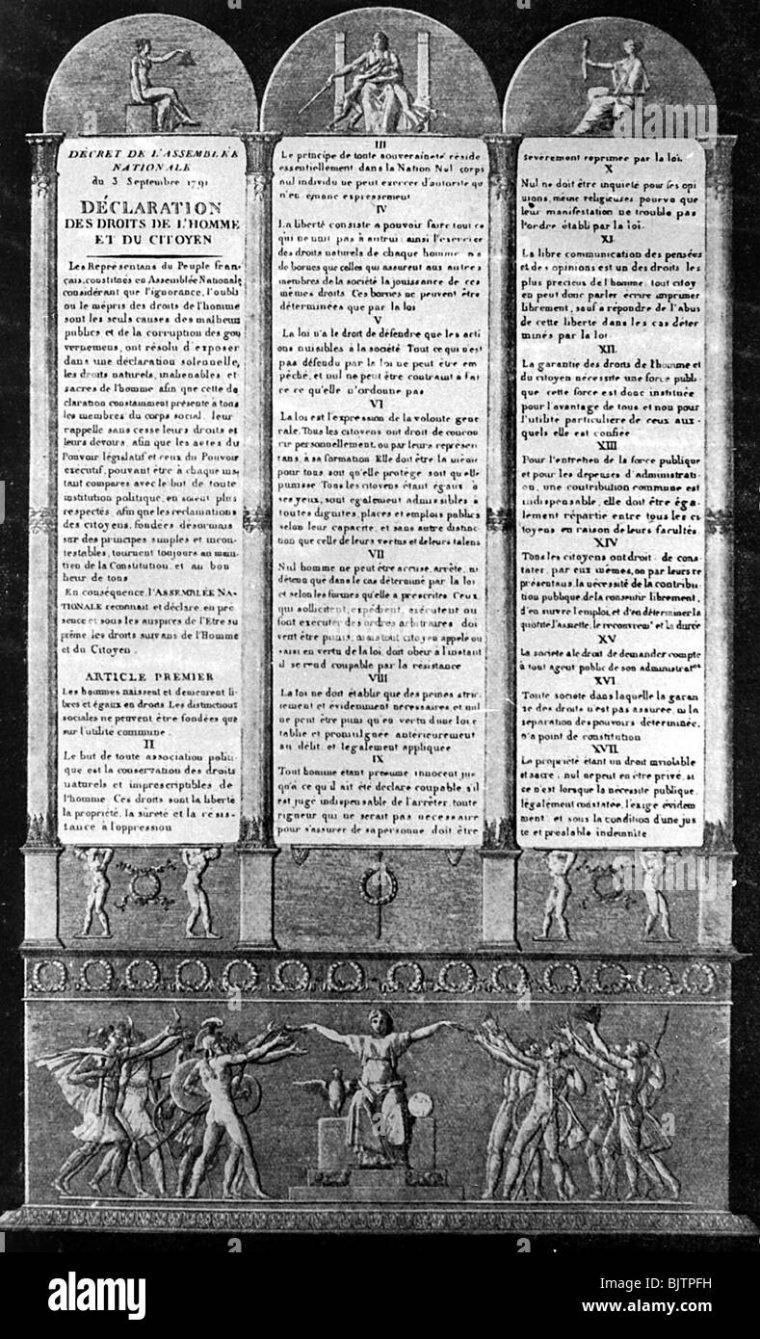 DÉCRET DE L'ASSEMBLÉE
NATIONALE
du 3 Septembre 1791
DÉCLARATION
DES DROITS DE L'HOMME
ET DU CITOYEN
Les Représentans du Peuple fran-
çais, constitués en Assemblée Nationale,
considérant que l'ignorance, l'oubli
ou le mépris des droits de l'homme
sont les seuls causes des malheurs
publics et de la corruption des gou
vernemens, ont résolu d'exposer
dans une déclaration solennelle,
les droits naturels, inalienables et
sacres de l'homme afin que cette dé
claration constamment présente à tous
les membres du corps social, leur
rappelle sans cesse leurs droits et
leurs devoirs, afin que les actes du
Pouvoir législatif et ceux du Pouvoir
executif, pouvant être à chaque ins
tant compares avec le but de toute
institution politique, en soient plus
respectés, afin que les reclamations
des citoyens, fondées desormais
sur des principes simples et incon-
testables, tournent toujours au main
tien de la Constitution, et au bon
heur de tous
En conséquence, l'ASSEMBLÉE NA-
TIONALE reconnait et déclare, en pré
sence et sous les auspices de l'Etre su
prême, les droits suivans de l'Homme
et du Citoyen.
ARTICLE PREMIER
Les hommes naissent et demeurent li-
bres et égaux en droits. Les distinctions
sociales ne peuvent être fondées que
sur l'utilité commune.
II
Le but de toute association politi-
que est la conservation des droits
naturels et imprescriptibles de
l'homme. Ces droits sont la liberté
la propriété, la sureté et la resis-
tance à l'oppression
III
Le principe de toute souveraineté réside
essentiellement dans la Nation Nul corps
nul individu ne peut exercer d'autorité qui
n'en émane expressement
IV
La liberté consiste a pouvoir faire tout ce
qui ne nuit pas à autrui: ainsi l'exercice
des droits naturels de chaque homme n a
de bornes que celles qui assurent aux autres
membres de la société la jouissance de ces
mêmes droits Ces bornes ne peuvent être
déterminées que par la loi
V
La loi n'a le droit de défendre que les acti
ons nuisibles à la société Tout ce qui n'est
pas défendu par la loi ne peut être em
pêché, et nul ne peut être contraint a fai
re ce qu'elle n'ordonne pas
VI
La loi est l'expression de la volonte géné
rale. Tous les citoyens ont droit de concou
rir personnellement, ou par leurs represen
tans, à sa formation Elle doit être la même
pour tous, soit qu'elle protege soit qu'elle
punisse Tous les citoyens étant égaux à
ses yeux, sont egalement admissibles a
toutes dignites, places et emplois publics
selon leur capacité, et sans autre distinc
tion que celle de leurs vertus et de leurs talens
VII
Nul homme ne peut être accuse, arrêté, ni
détenu que dans le cas déterminé par la loi
et selon les formes qu'elle a prescrites Ceux
qui sollicitent, expédient, exécutent ou
font executer des ordres arbitraires doi
vent être punis, mais tout citoyen appele ou
saisi en vertu de la loi, doit obeir a l'instant
il se rend coupable par la resistance
VIII
La loi ne doit établir que des peines stric
tement et évidemment necessaires et nul
ne peut être puni qu'en vertu d'une loi é
tablie et promulguée antérieurement
au délit et légalement appliquée
IX
Tout homme étant presume innocent jus
qu'a ce qu'il ait été déclare coupable, s'il
est jugé indispensable de l'arrêter, toute
rigueur qui ne serait pas necessaire
pour s'assurer de sa personne doit être
severement reprimee par la loi.
X
Nul ne doit être inquieté pour ses opi
nions, même religieuses pourvu que
leur manifestation ne trouble pas
l'ordre établi par la loi.
XI
La libre communication des pensées
et des opinions est un des droits les
plus precieux de l'homme: tout citoy
en peut donc parler écrire imprimer
librement, sauf a répondre de l'abus
de cette liberté dans les cas déter
minés par la loi
XII
La garantie des droits de l'homme et
du citoyen nécessite une force publi-
que cette force est donc instituée
pour l'avantage de tous et non pour
l'utilite particuliere de ceux aux-
quels elle est confiée
XIII
Pour l'entretien de la force publique
et pour les depenses d'administrati-
on, une contribution commune est
indispensable, elle doit être éga-
lement répartie entre tous les ci
toyens en raison de leurs facultés.
XIV
Tous les citoyens ont droit de cons-
tater, par eux mêmes, ou par leurs re
présentans, la nécessité de la contribu-
tion publique, de la consentir librement,
d'en suivre l'emploi, et d'en déterminer la
quotité, l'assiette, le recouvremt et la durée
XV
La societe a le droit de demander compte
à tout agent public de son administration
XVI
Toute societé dans laquelle la garan
tie des droits n'est pas assuree, ni la
separation des pouvoirs determinée,
n'a point de constitution
XVII
La propriété étant un droit inviolable
et sacre, nul ne peut en être privé, si
ce n'est lorsque la nécessité publique,
légalement constatée, l'exige évidem
ment et sous la condition d'une jus
te et prealable indemnité
alamy
Image ID: BJTPFH
www.alamy.com